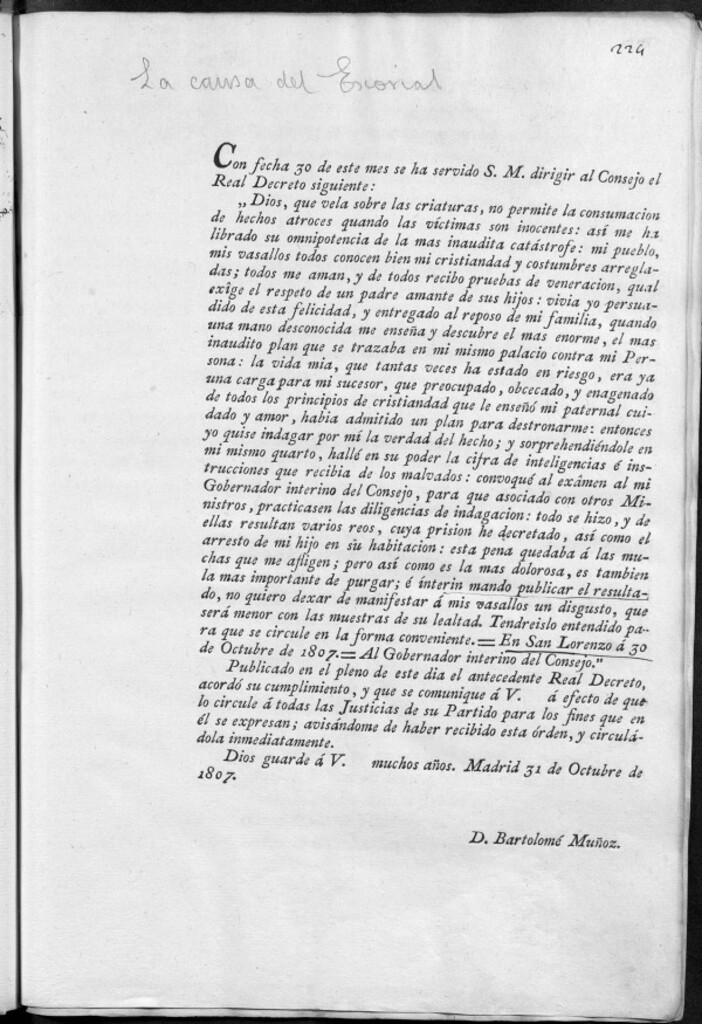 224
La causa del Escorial
Con fecha 30 de este mes se ha servido S. M. dirigir al Consejo el
Real Decreto siguiente:
„Dios, que vela sobre las criaturas, no permite la consumacion
de hechos atroces quando las víctimas son inocentes: así me ha
librado su omnipotencia de la mas inaudita catástrofe: mi pueblo,
mis vasallos todos conocen bien mi cristiandad y costumbres arregla-
das; todos me aman, y de todos recibo pruebas de veneracion, qual
exîge el respeto de un padre amante de sus hijos: vivia yo persua-
dido de esta felicidad, y entregado al reposo de mi familia, quando
una mano desconocida me enseña y descubre el mas enorme, el mas
inaudito plan que se trazaba en mi mismo palacio contra mi Per-
sona: la vida mia, que tantas veces ha estado en riesgo, era ya
una carga para mi sucesor, que preocupado, obcecado, y enagenado
de todos los principios de cristiandad que le enseñó mi paternal cui-
dado y amor, habia admitido un plan para destronarme: entonces
yo quise indagar por mí la verdad del hecho; y sorprehendiéndole en
mi mismo quarto, hallé en su poder la cifra de inteligencias é ins-
trucciones que recibia de los malvados: convoqué al exámen al mi
Gobernador interino del Consejo, para que asociado con otros Mi-
nistros, practicasen las diligencias de indagacion: todo se hizo, y de
ellas resultan varios reos, cuya prision he decretado, así como el
arresto de mi hijo en su habitacion: esta pena quedaba á las mu-
chas que me afligen; pero así como es la mas dolorosa, es tambien
la mas importante de purgar; é interin mando publicar el resulta-
do, no quiero dexar de manifestar á mis vasallos un disgusto, que
será menor con las muestras de su lealtad. Tendreislo entendido pa-
ra que se circule en la forma conveniente.=En San Lorenzo á 30
de Octubre de 1807.=Al Gobernador interino del Consejo."
Publicado en el pleno de este dia el antecedente Real Decreto,
acordó su cumplimiento, y que se comunique á V. á efecto de que
lo circule á todas las Justicias de su Partido para los fines que en
él se expresan; avisándome de haber recibido esta órden, y circulá-
dola inmediatamente.
Dios guarde á V. muchos años. Madrid 31 de Octubre de
1807.
D. Bartolomé Muñoz.